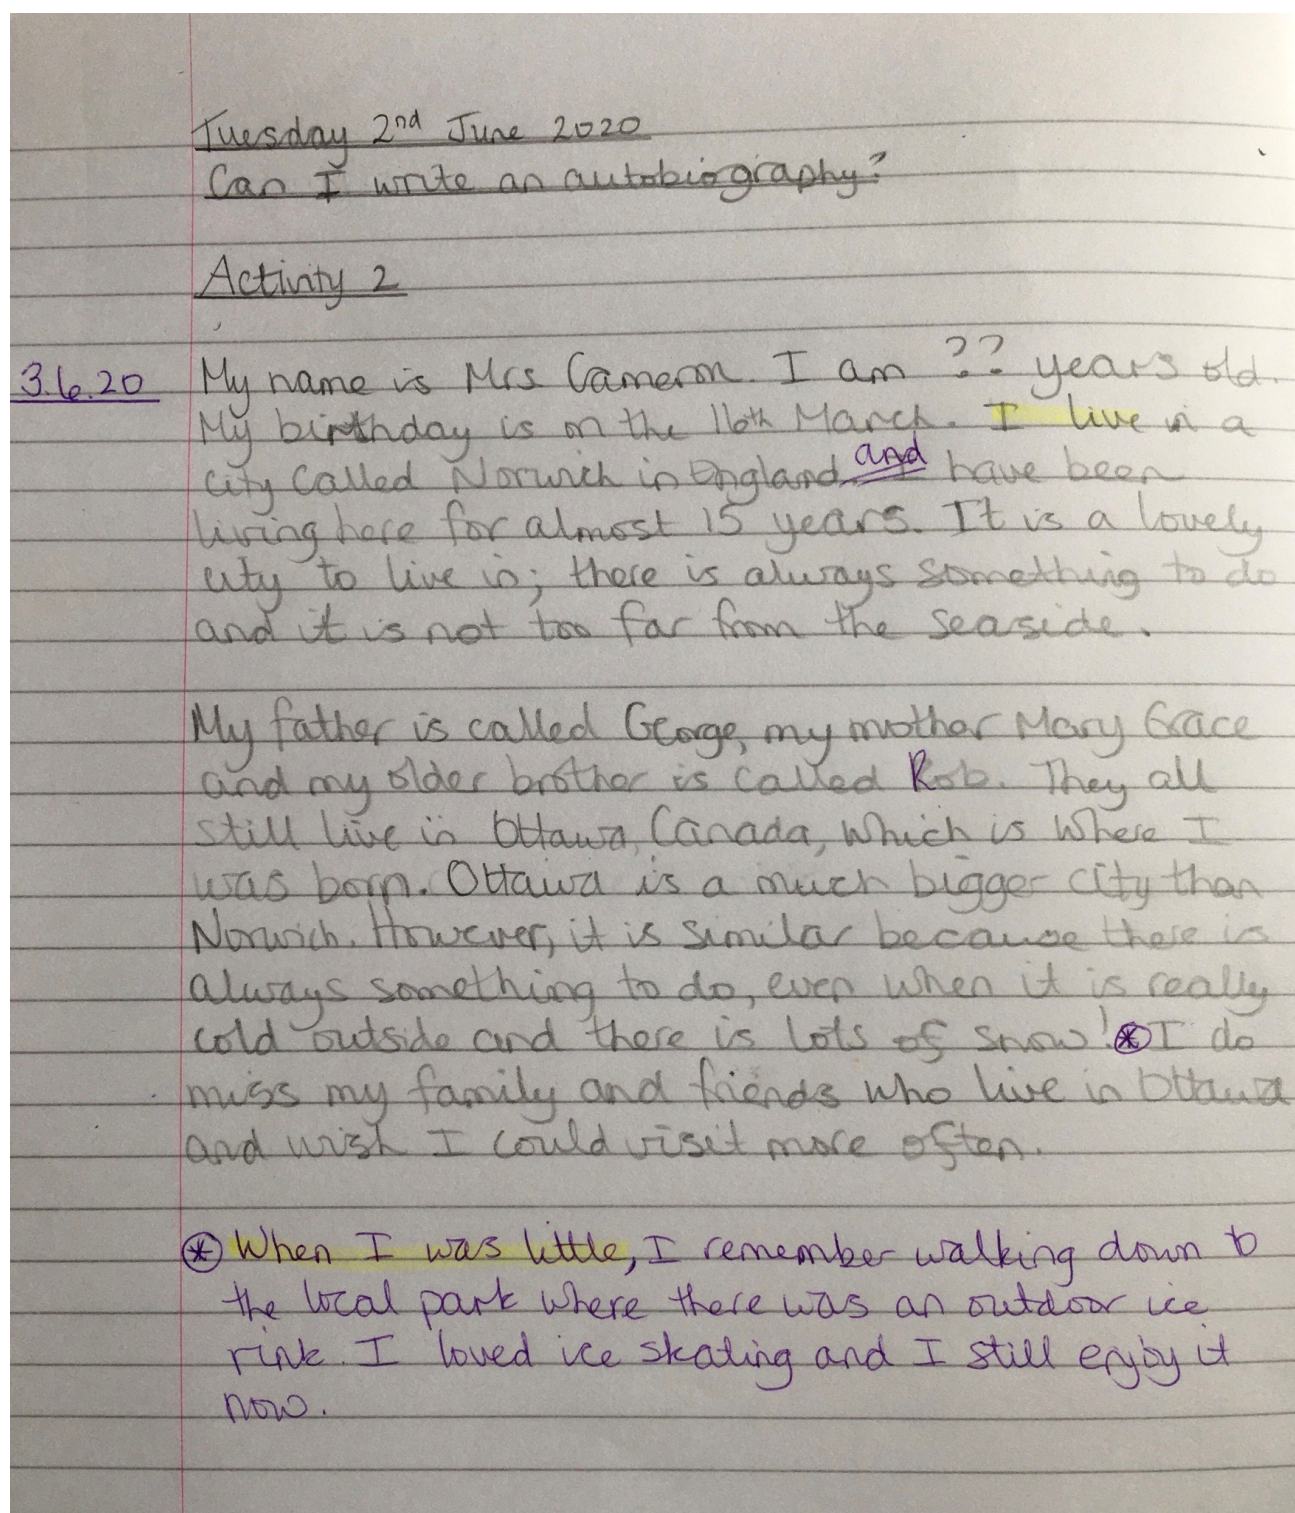 Tuesday 2nd June 2020
Can I write an autobiography?
Activity 2
3.6.20 My name is Mrs Cameron. I am ?? years old.
My birthday is on the 16th March. I live in a
city called Norwich in England and have been
living here for almost 15 years. It is a lovely
city to live in; there is always something to do
and it is not too far from the seaside.
My father is called George, my mother Mary Grace
and my older brother is called Rob. They all
still live in Ottawa, Canada, which is where I
was born. Ottawa is a much bigger city than
Norwich. However, it is similar because there is
always something to do, even when it is really
cold outside and there is lots of snow! * I do
miss my family and friends who live in Ottawa
and wish I could visit more often.
* When I was little, I remember walking down to
the local park where there was an outdoor ice
rink. I loved ice skating and I still enjoy it
now.